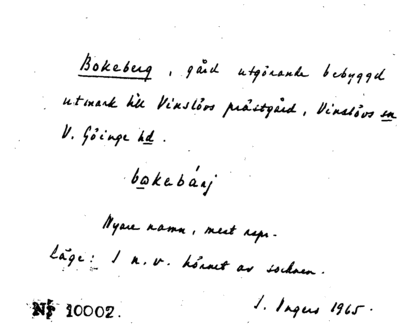 Bokeberg, gård utgörande bebyggd
utmark till Vinslövs prästgård, Vinslövs sn
V. Göinge hd.
bokebárj
Nyare namn, mest repr.
Läge: I n.v. hörnet av socknen.
I. Ingers 1965.
Nr 10002.